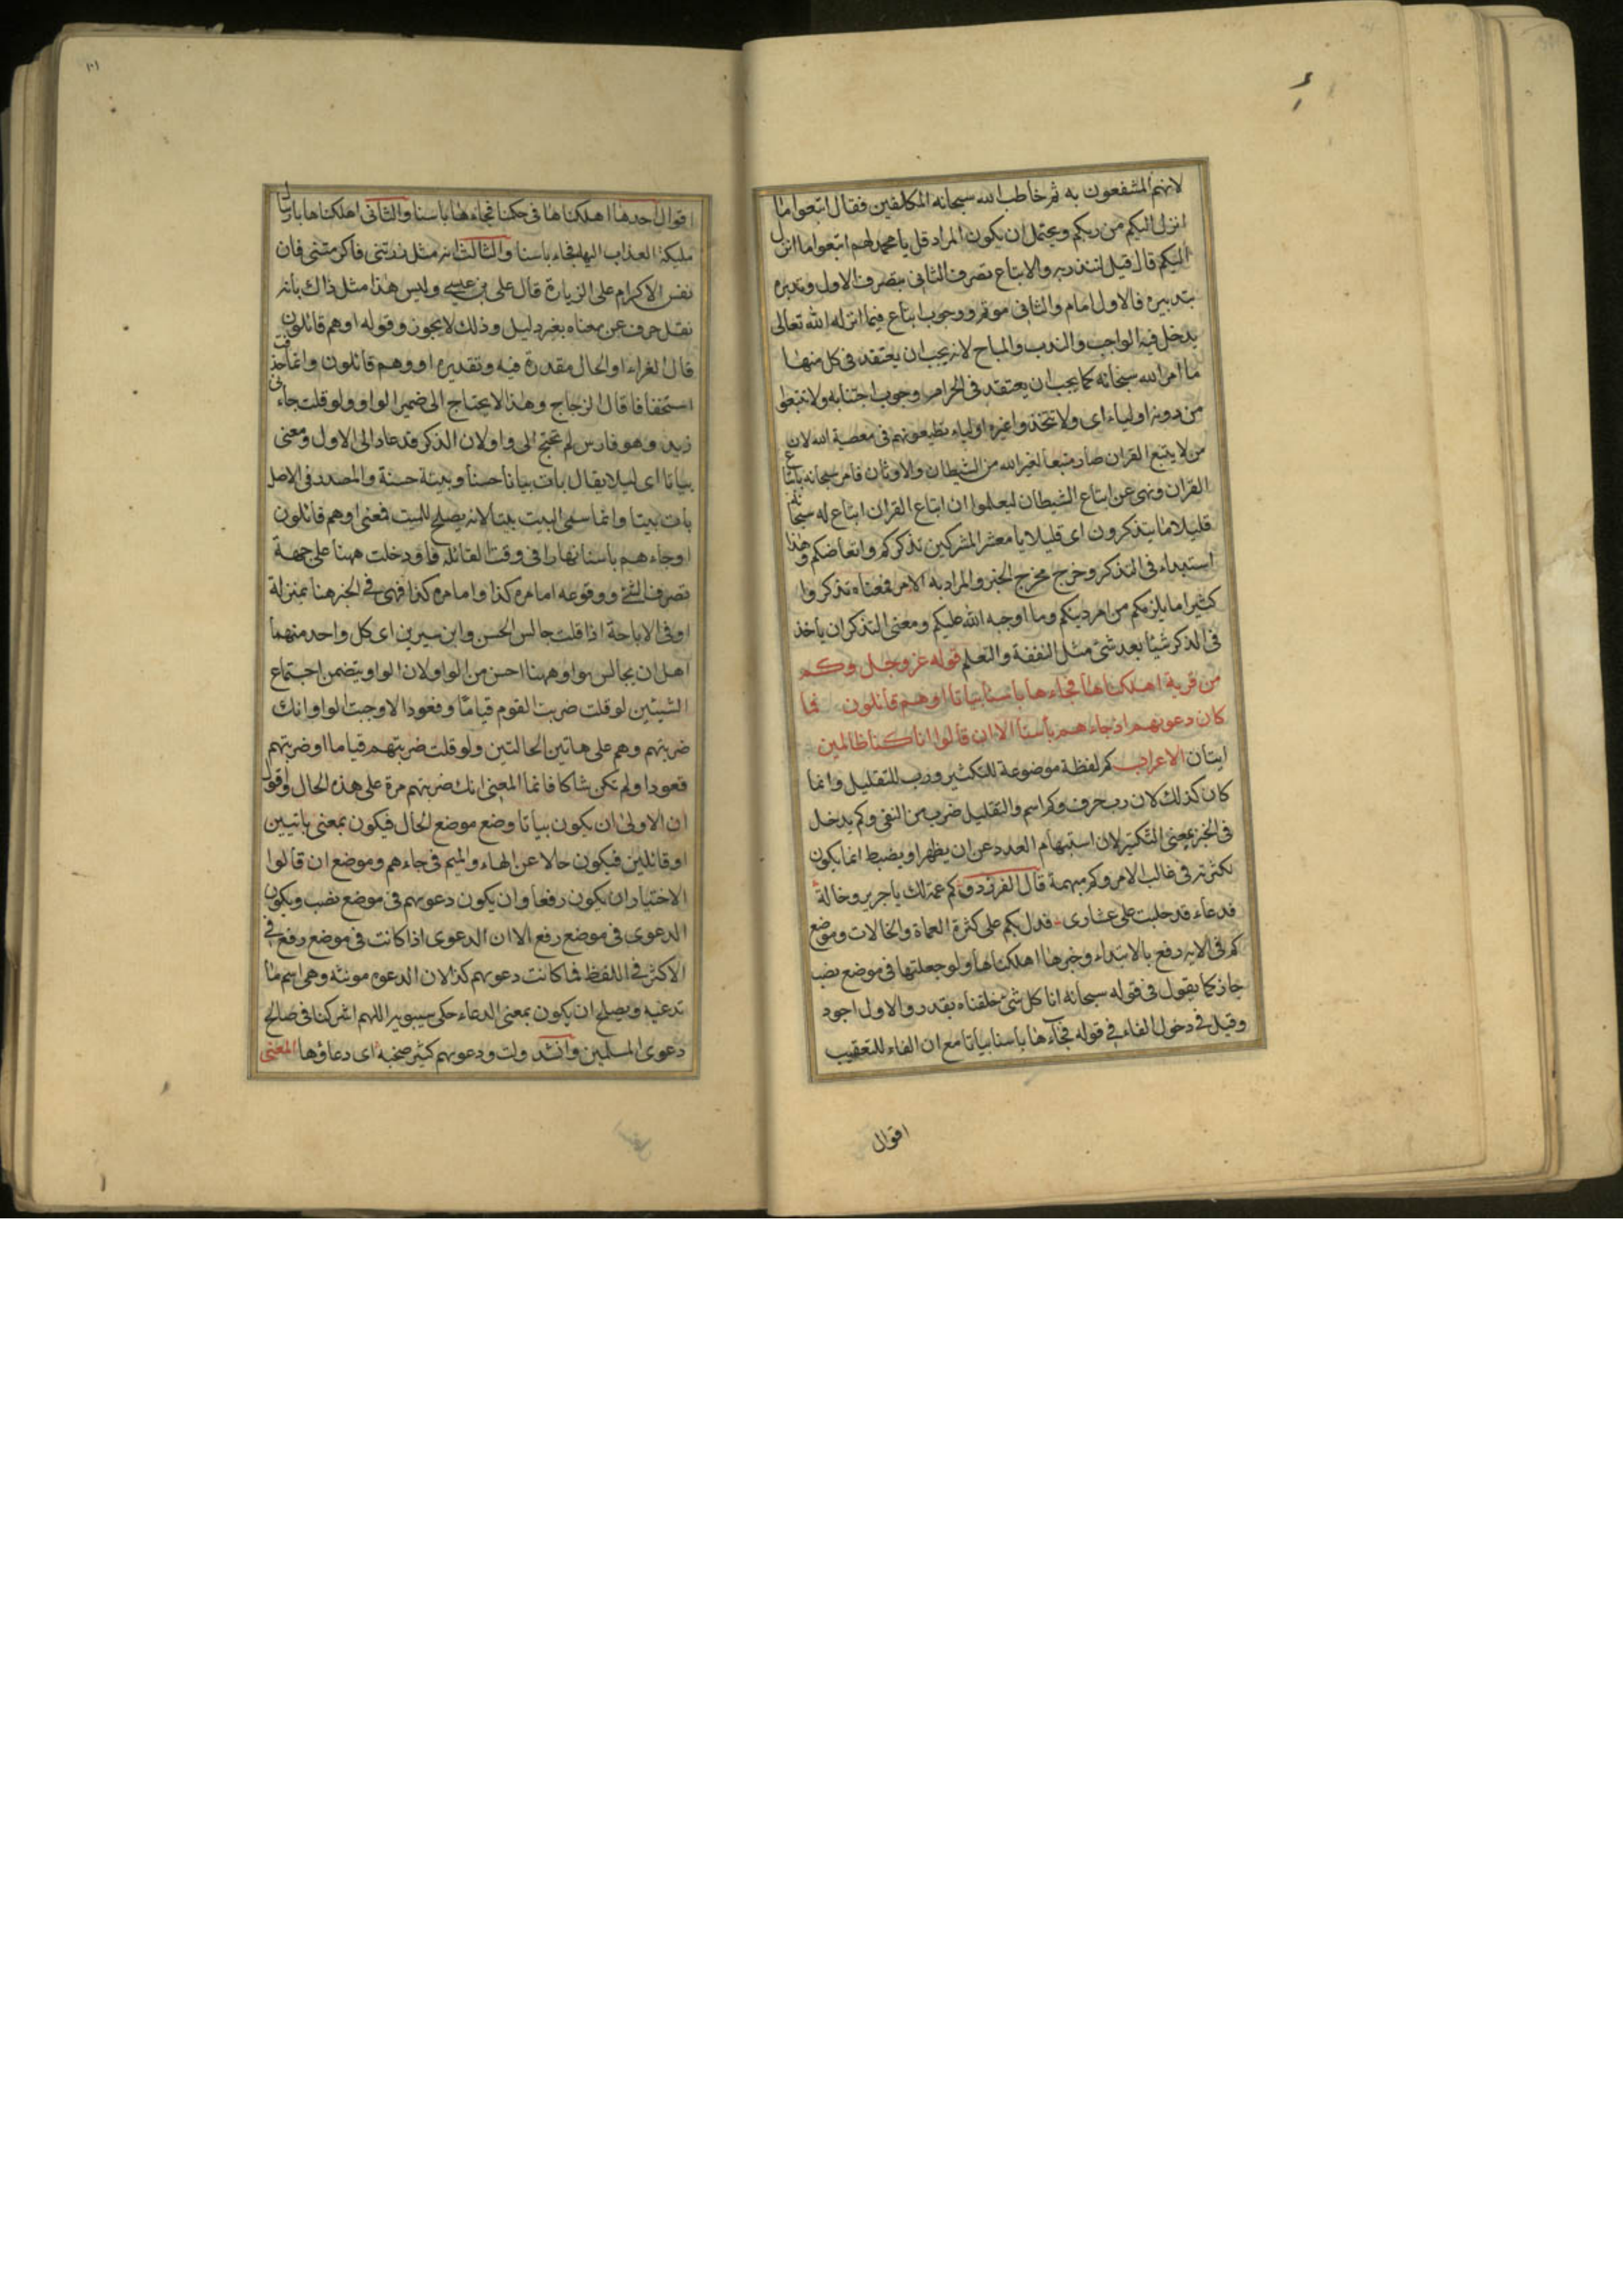 لانهم المشفعون به ثم خاطب الله سبحانه المكلفين فقال اتبعوا ما
انزل اليكم من ربكم ويحتمل ان يكون المراد قل يا محمد لهم اتبعوا ما انزل
اليكم قال قيل لتنذر به والاتباع تصرف الثانى بتصرف الاول وتدبره
بتدبيره فالاول امام والثانى موتم ووجوب اتباع فيما انزله الله تعالى
يدخل فيه الواجب والندب والمباح لانه يجب ان يعتقد فى كل منها
ما امر الله سبحانه كما يجب ان يعتقد فى الحرام وجوب اجتنابه ولا تتبعوا
من دونه اولياء اى ولا تتخذوا غيره اولياء تطيعونهم فى معصية الله لان
من لا يتبع القران صار متبعا لغير الله من الشيطان والاوثان فامر سبحانه باتباع
القران ونهى عن اتباع الشيطان ليعلموا ان اتباع القران اتباع له سبحانه
قليلا ما يتذكرون اى قليلا يا معشر المشركين تذكركم واتعاضكم وهذا
استبطاء فى التذكر وخرج مخرج الخبر والمراد به الامر فمعناه تذكروا
كثيرا ما يلزمكم من امر دينكم وما اوجبه الله عليكم ومعنى التذكر ان ياخذ
فى الذكر شيئا بعد شئ مثل التفقه والتعلم قوله عز وجل وكم
من قرية اهلكناها فجاءها باسنا بياتا او هم قائلون فما
كان دعويهم اذ جاءهم بأسنا الا ان قالوا انا كنا ظالمين
ايتان الاعراب كم لفظة موضوعة للتكثير ورب للتقليل وانما
كان كذلك لان رب حرف وكم اسم والتقليل ضرب من النفى وكم يدخل
فى الخبر بمعنى التكثير لان استبهام العدد عن ان يظهر او يضبط انما يكون
لكثرته فى غالب الامر وكم مبهمة قال الفرزدق كم عمة لك يا جرير وخالة
فدعاء قد حلبت على عشارى فدل بكم على كثرة العمات والخالات وموضع
كم فى الايه رفع بالابتداء وخبرها اهلكناها ولو جعلتها فى موضع نصب
جاز كما يقول فى قوله سبحانه انا كل شئ خلقناه بقدر والاول اجود
وقيل فى دخول الفاء فى قوله فجاءها بأسنا بياتا مع ان الفاء للتعقيب
اقوال
اقوال احدها اهلكناها فى حكمنا فجاءها باسنا والثانى اهلكناها بارسال
مليكة العذاب اليها فجاء باسنا والثالث انه مثل زرتنى فاكرمتنى فان
نفس الاكرام على الزيارة قال على بن عيسى وليس هذا مثل ذاك بانه
نقل حرف عن معناه بغير دليل وذلك لا يجوز وقوله او هم قائلون
قال الفراء او الحال مقدرة فيه وتقديره او وهم قائلون وانما حذفت
استخفافا قال الزجاج وهذا لا يحتاج الى ضمير الواو ولو قلت جاءنى
زيد وهو فارس لم تحتج الى واو لان الذكر قد عاد الى الاول ومعنى
بياتا اى ليلا يقال بات بياتا حسنا وبيتة حسنة والمصدر فى الاصل
بات بيتا وانما سمى البيت بيتا لانه يصلح للبيت فمعنى او هم قائلون
او جاءهم باسنا نهارا فى وقت القائلة فاو دخلت ههنا على جهة
تصرف الشئ ووقوعه اما مره كذا واما مره كذا فهى فى الخبر هنا بمنزلة
او فى الاباحة اذا قلت جالس الحسن وابن سيرين اى كل واحد منهما
اهل ان يجالس واو ههنا احسن من الواو لان الواو يتضمن اجتماع
الشيئين لو قلت ضربت القوم قياما وقعودا لاوجبت الواو انك
ضربتهم وهم على هاتين الحالتين ولو قلت ضربتهم قياما او ضربتهم
قعودا ولم تكن شاكا فانما المعنى انك ضربتهم مرة على هذه الحال واقول
ان الاولى ان يكون بياتا وضع موضع الحال فيكون بمعنى بايتين
او قائلين فيكون حالا عن الهاء والميم فى جاءهم وموضع ان قالوا
الاختيار ان يكون رفعا وان يكون دعويهم فى موضع نصب ويكون
الدعوى فى موضع رفع الا ان الدعوى اذا كانت فى موضع رفع فى
الاكثر فى اللفظ فما كانت دعويهم كذا لان الدعوى مونثه وهى اسم ما
تدعيه ويصلح ان يكون بمعنى الدعاء حكى سيبويه اللهم اشركنا فى صالح
دعوى المسلمين وانشد ولت ودعويهم كثير صخبه اى دعاؤها المعنى